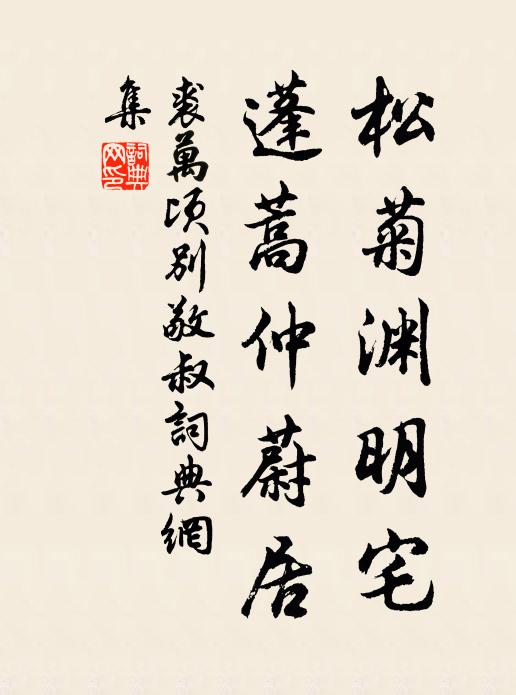 松菊渊明宅
蓬蒿仲蔚居
裘萬頃別敬叔詞典網
集
詞典
网印